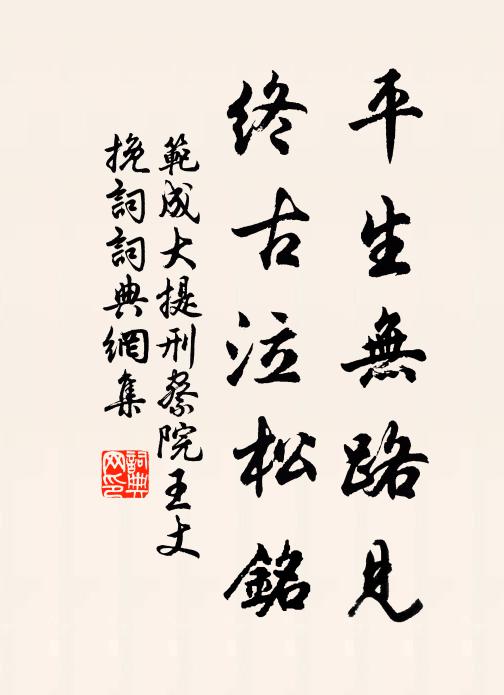 平生無路見
終古泣松銘
範成大提刑察院王丈
挽詞詞典網集
詞典網印